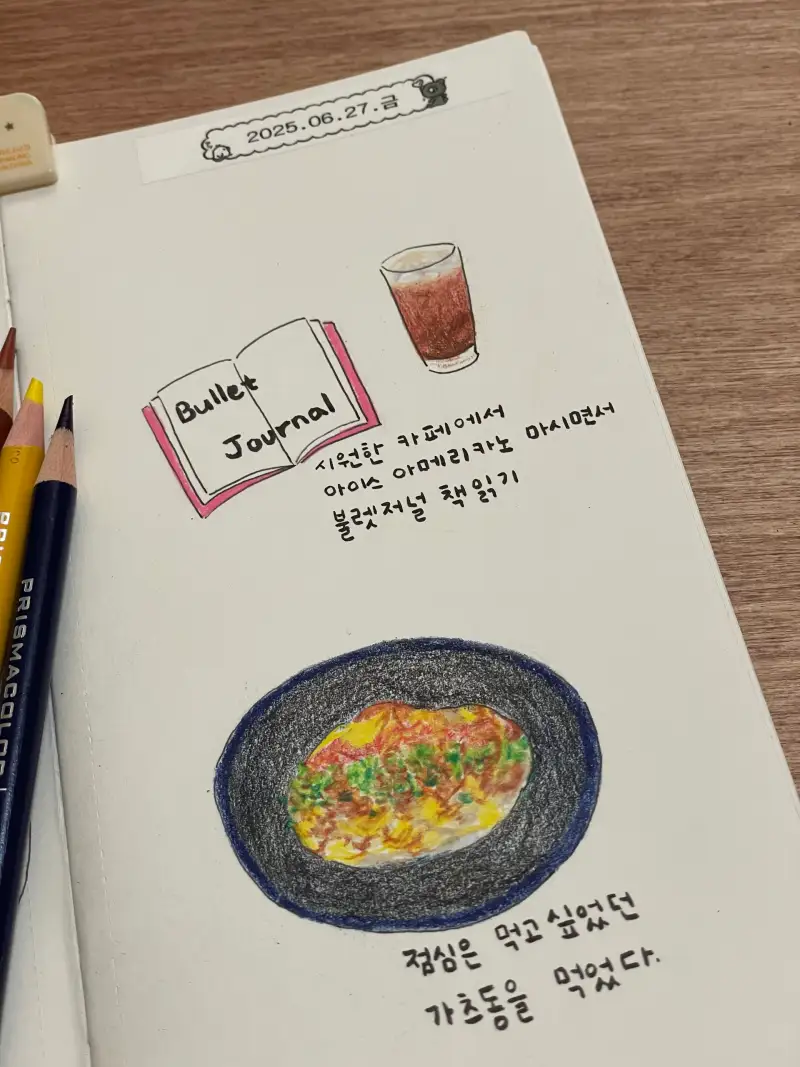 2025.06.27.금
Bullet
Journal
시원한 카페에서
아이스 아메리카노 마시면서
불렛저널 책 읽기
PRISMACOLOR
점심은 먹고싶었던
가츠동을 먹었다.